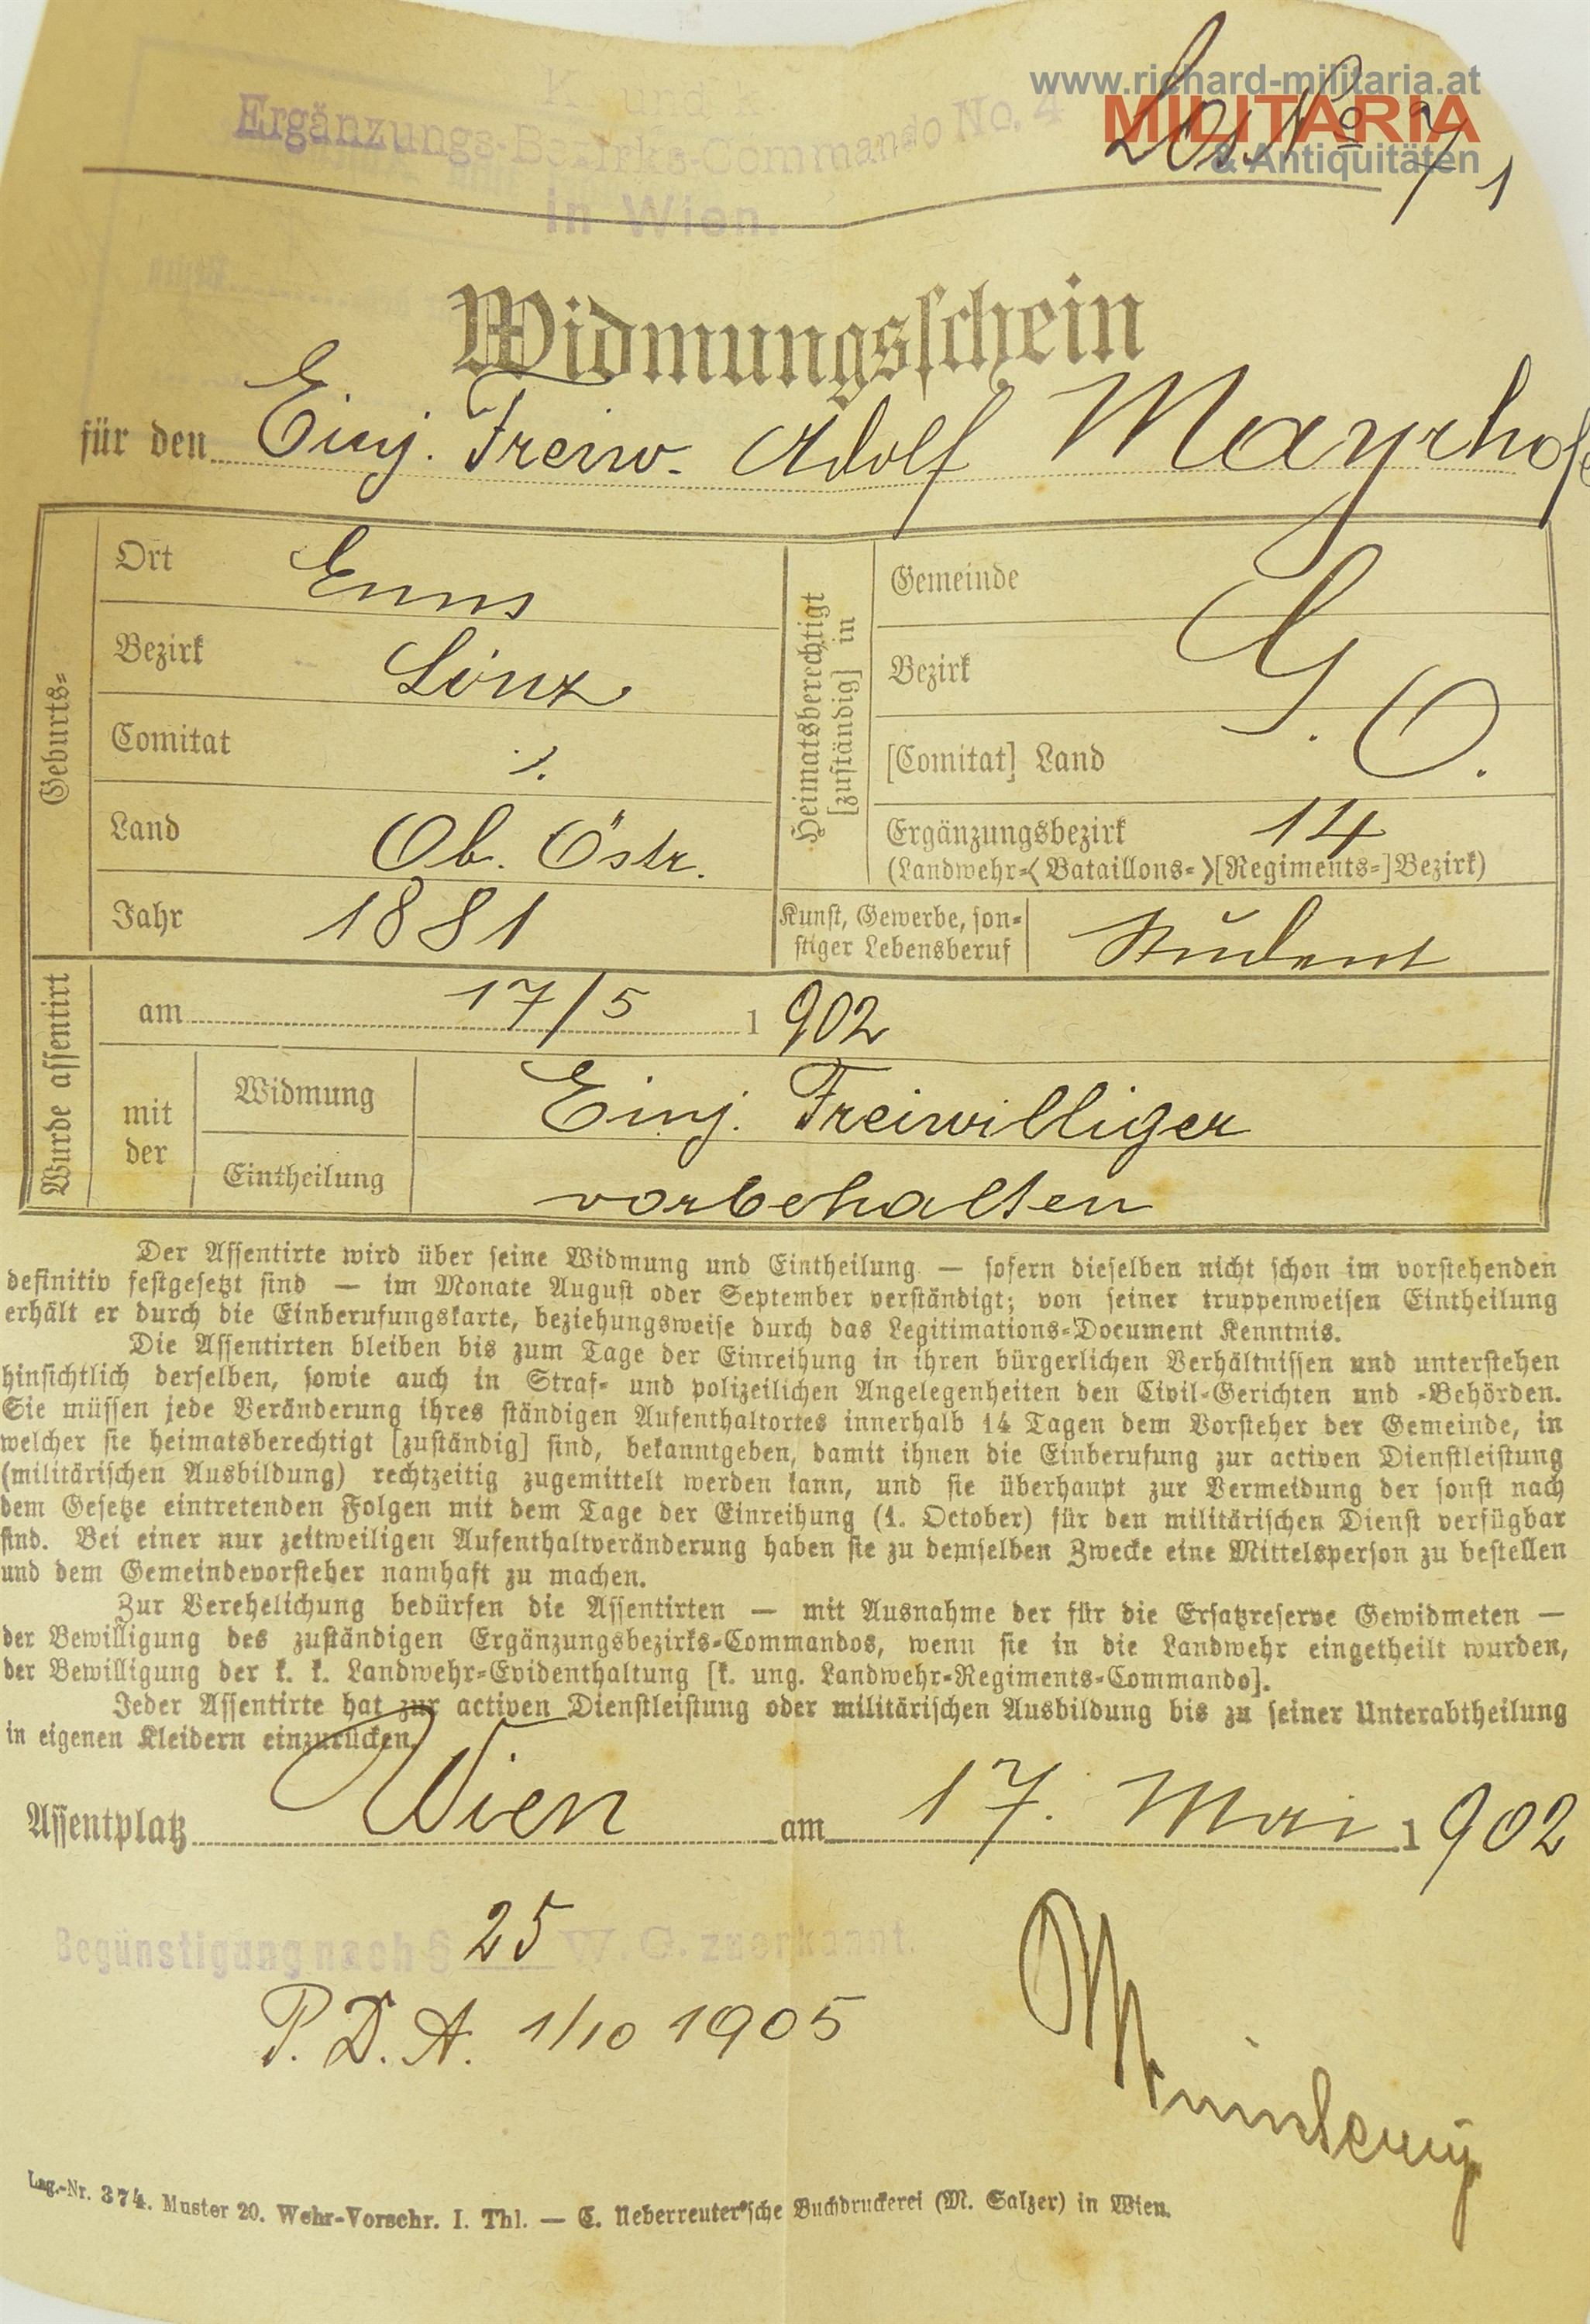 www.richard-militaria.at
MILITARIA
& Antiquitäten
K. und k.
Ergänzungs-Bezirks-Commando No. 4
in Wien.
Los No 71
Widmungsschein
für den Einj. Freiw. Adolf Mayrhofe
Geburts-
Ort Enns
Bezirk Linz
Comitat ⁒
Land Ob. Östr.
Jahr 1881
Heimatsberechtigt [zuständig] in
Gemeinde
Bezirk
[Comitat] Land
G. O.
Ergänzungsbezirk 14
(Landwehr-<Bataillons->[Regiments-]Bezirk)
Kunst, Gewerbe, son-
stiger Lebensberuf Student
Wurde assentirt
am 17/5 1 902
mit der
Widmung Einj. Freiwilliger
Eintheilung vorbehalten
Der Assentirte wird über seine Widmung und Eintheilung — sofern dieselben nicht schon im vorstehenden
definitiv festgesetzt sind — im Monate August oder September verständigt; von seiner truppenweisen Eintheilung
erhält er durch die Einberufungskarte, beziehungsweise durch das Legitimations-Document Kenntnis.
Die Assentirten bleiben bis zum Tage der Einreihung in ihren bürgerlichen Verhältnissen und unterstehen
hinsichtlich derselben, sowie auch in Straf- und polizeilichen Angelegenheiten den Civil-Gerichten und -Behörden.
Sie müssen jede Veränderung ihres ständigen Aufenthaltortes innerhalb 14 Tagen dem Vorsteher der Gemeinde, in
welcher sie heimatsberechtigt [zuständig] sind, bekanntgeben, damit ihnen die Einberufung zur activen Dienstleistung
(militärischen Ausbildung) rechtzeitig zugemittelt werden kann, und sie überhaupt zur Vermeidung der sonst nach
dem Gesetze eintretenden Folgen mit dem Tage der Einreihung (1. October) für den militärischen Dienst verfügbar
sind. Bei einer nur zeitweiligen Aufenthaltveränderung haben sie zu demselben Zwecke eine Mittelsperson zu bestellen
und dem Gemeindevorsteher namhaft zu machen.
Zur Verehelichung bedürfen die Assentirten — mit Ausnahme der für die Ersatzreserve Gewidmeten —
der Bewilligung des zuständigen Ergänzungsbezirks-Commandos, wenn sie in die Landwehr eingetheilt wurden,
der Bewilligung der k. k. Landwehr-Evidenthaltung [k. ung. Landwehr-Regiments-Commando].
Jeder Assentirte hat zur activen Dienstleistung oder militärischen Ausbildung bis zu seiner Unterabtheilung
in eigenen Kleidern einzurücken.
Assentplatz Wien am 17. Mai 1 902
Begünstigung nach § 25 W. G. zuerkannt.
P. D. A. 1/10 1905
Lag.-Nr. 374. Muster 20. Wehr-Vorschr. I. Thl. — C. Ueberreuter'sche Buchdruckerei (M. Salzer) in Wien.